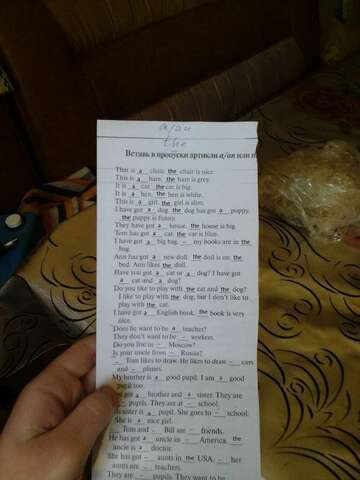 a/an
the
Вставь в пропуски артикли a/an или
That is a chair. the chair is nice.
This is a hare. the hare is grey.
It is a cat. the cat is big.
It is a hen. the hen is white.
This is a girl. the girl is slim.
I have got a dog. the dog has got a puppy.
the puppy is funny.
They have got a house. the house is big.
Tom has got a car. the car is blue.
I have got a big bag. – my books are in the
bag.
Ann has got a new doll. the doll is on the
bed. Ann likes the doll.
Have you got a cat or a dog? I have got
a cat and a dog?
Do you like to play with the cat and the dog?
I like to play with the dog, but I don't like to
play with the cat.
I have got a English book. the book is very
nice.
Does he want to be a teacher?
They don't want to be – workers.
Do you live in – Moscow?
Is your uncle from – Russia?
– Tom likes to draw. He likes to draw – cars
and – planes.
My brother is a good pupil. I am a good
pupil too.
got a brother and a sister. They are
pupils. They are at – school.
sister is a pupil. She goes to – school.
She is a nice girl.
Tom and – Bill are – friends.
He has got a uncle in – America. the
uncle is a doctor.
She has got – aunts in the USA. – her
aunts are – teachers.
They are – pupils. They want to be